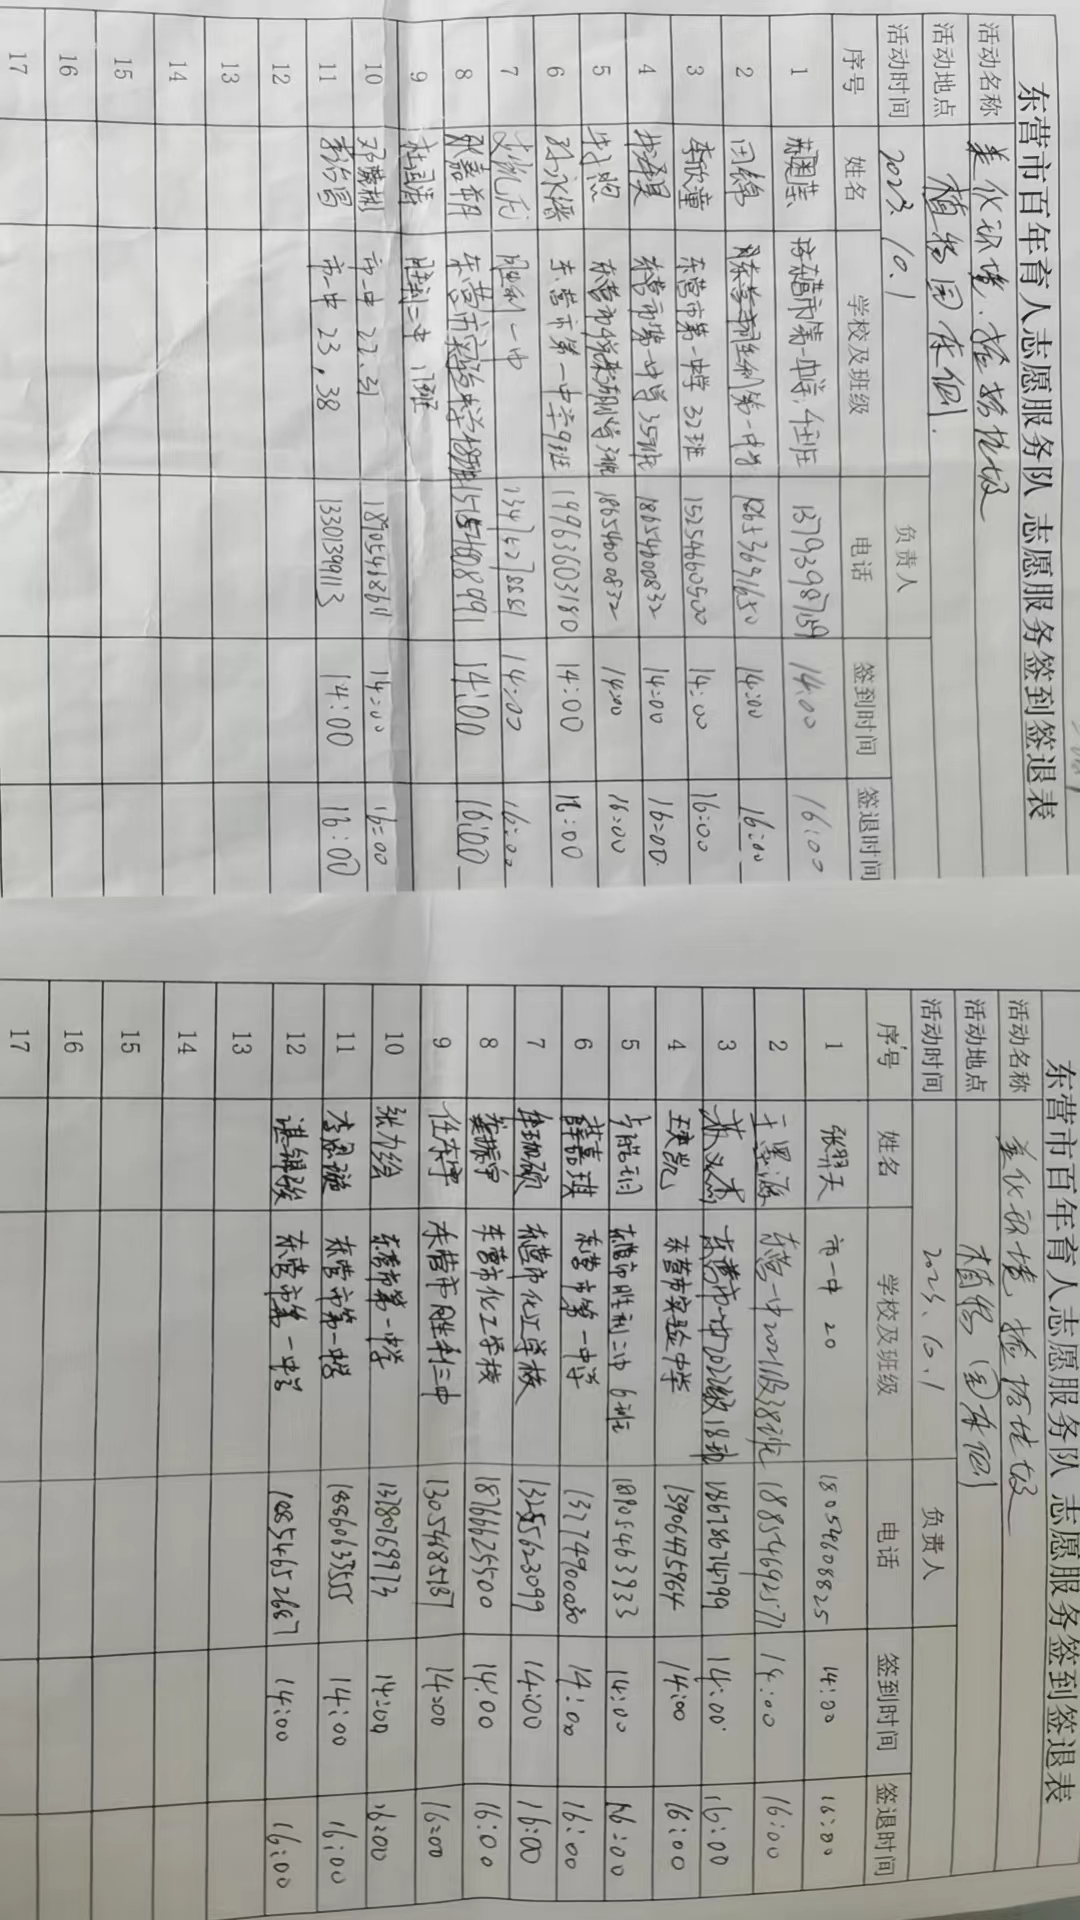 东营市百年育人志愿服务队 志愿服务签到签退表
活动名称 美化环境.捡拾垃圾
活动地点 植物园东侧.
活动时间 2023.10.1 负责人
序号 姓名 学校及班级 电话 签到时间 签退时间
1 东营市第一中学 13793987159 14:00 16:00
2 田锦 第一中学 14:00 16:00
3 李欣童 东营市第一中学 32班 15254660500 14:00 16:00
4 东营市第一中学35班 18654600832 14:00 16:00
5 18654600832 14:00 16:00
6 东营市第一中学9班 19963603180 14:00 16:00
7 胜利一中 14:00 16:00
8 张嘉朔 东营市实验中学 15157608991 14:00 16:00
9 胜利二中
10 邓 市一中 22.31 18905468611 14:00 16:00
11 市一中 23,38 13301399113 14:00 16:00
12
13
14
15
16
17
东营市百年育人志愿服务队 志愿服务签到签退表
活动名称 美化环境 捡拾垃圾
活动地点 植物园东侧
活动时间 2023.10.1 负责人
序号 姓名 学校及班级 电话 签到时间 签退时间
1 张羿天 市一中 20 18054608825 14:00 16:00
2 于墨源 东营一中2021级38班 18854669257 14:00 16:00
3 18678674799 14:00 16:00
4 东营市实验中学 13906475964 14:00 16:00
5 东营市胜利二中 6班 18905463933 14:00 16:00
6 薛嘉琪 东营市第一中学 13774900030 14:00 16:00
7 东营市化工学校 13255623099 14:00 16:00
8 东营市化工学校 18766625500 14:00 16:00
9 东营市胜利二中 13054685187 14:00 16:00
10 张力绘 东营市第一中学 13780769973 14:00 16:00
11 李恩 东营市第一中学 18860635555 14:00 16:00
12 东营市第一中学 18854652667 14:00 16:00
13
14
15
16
17